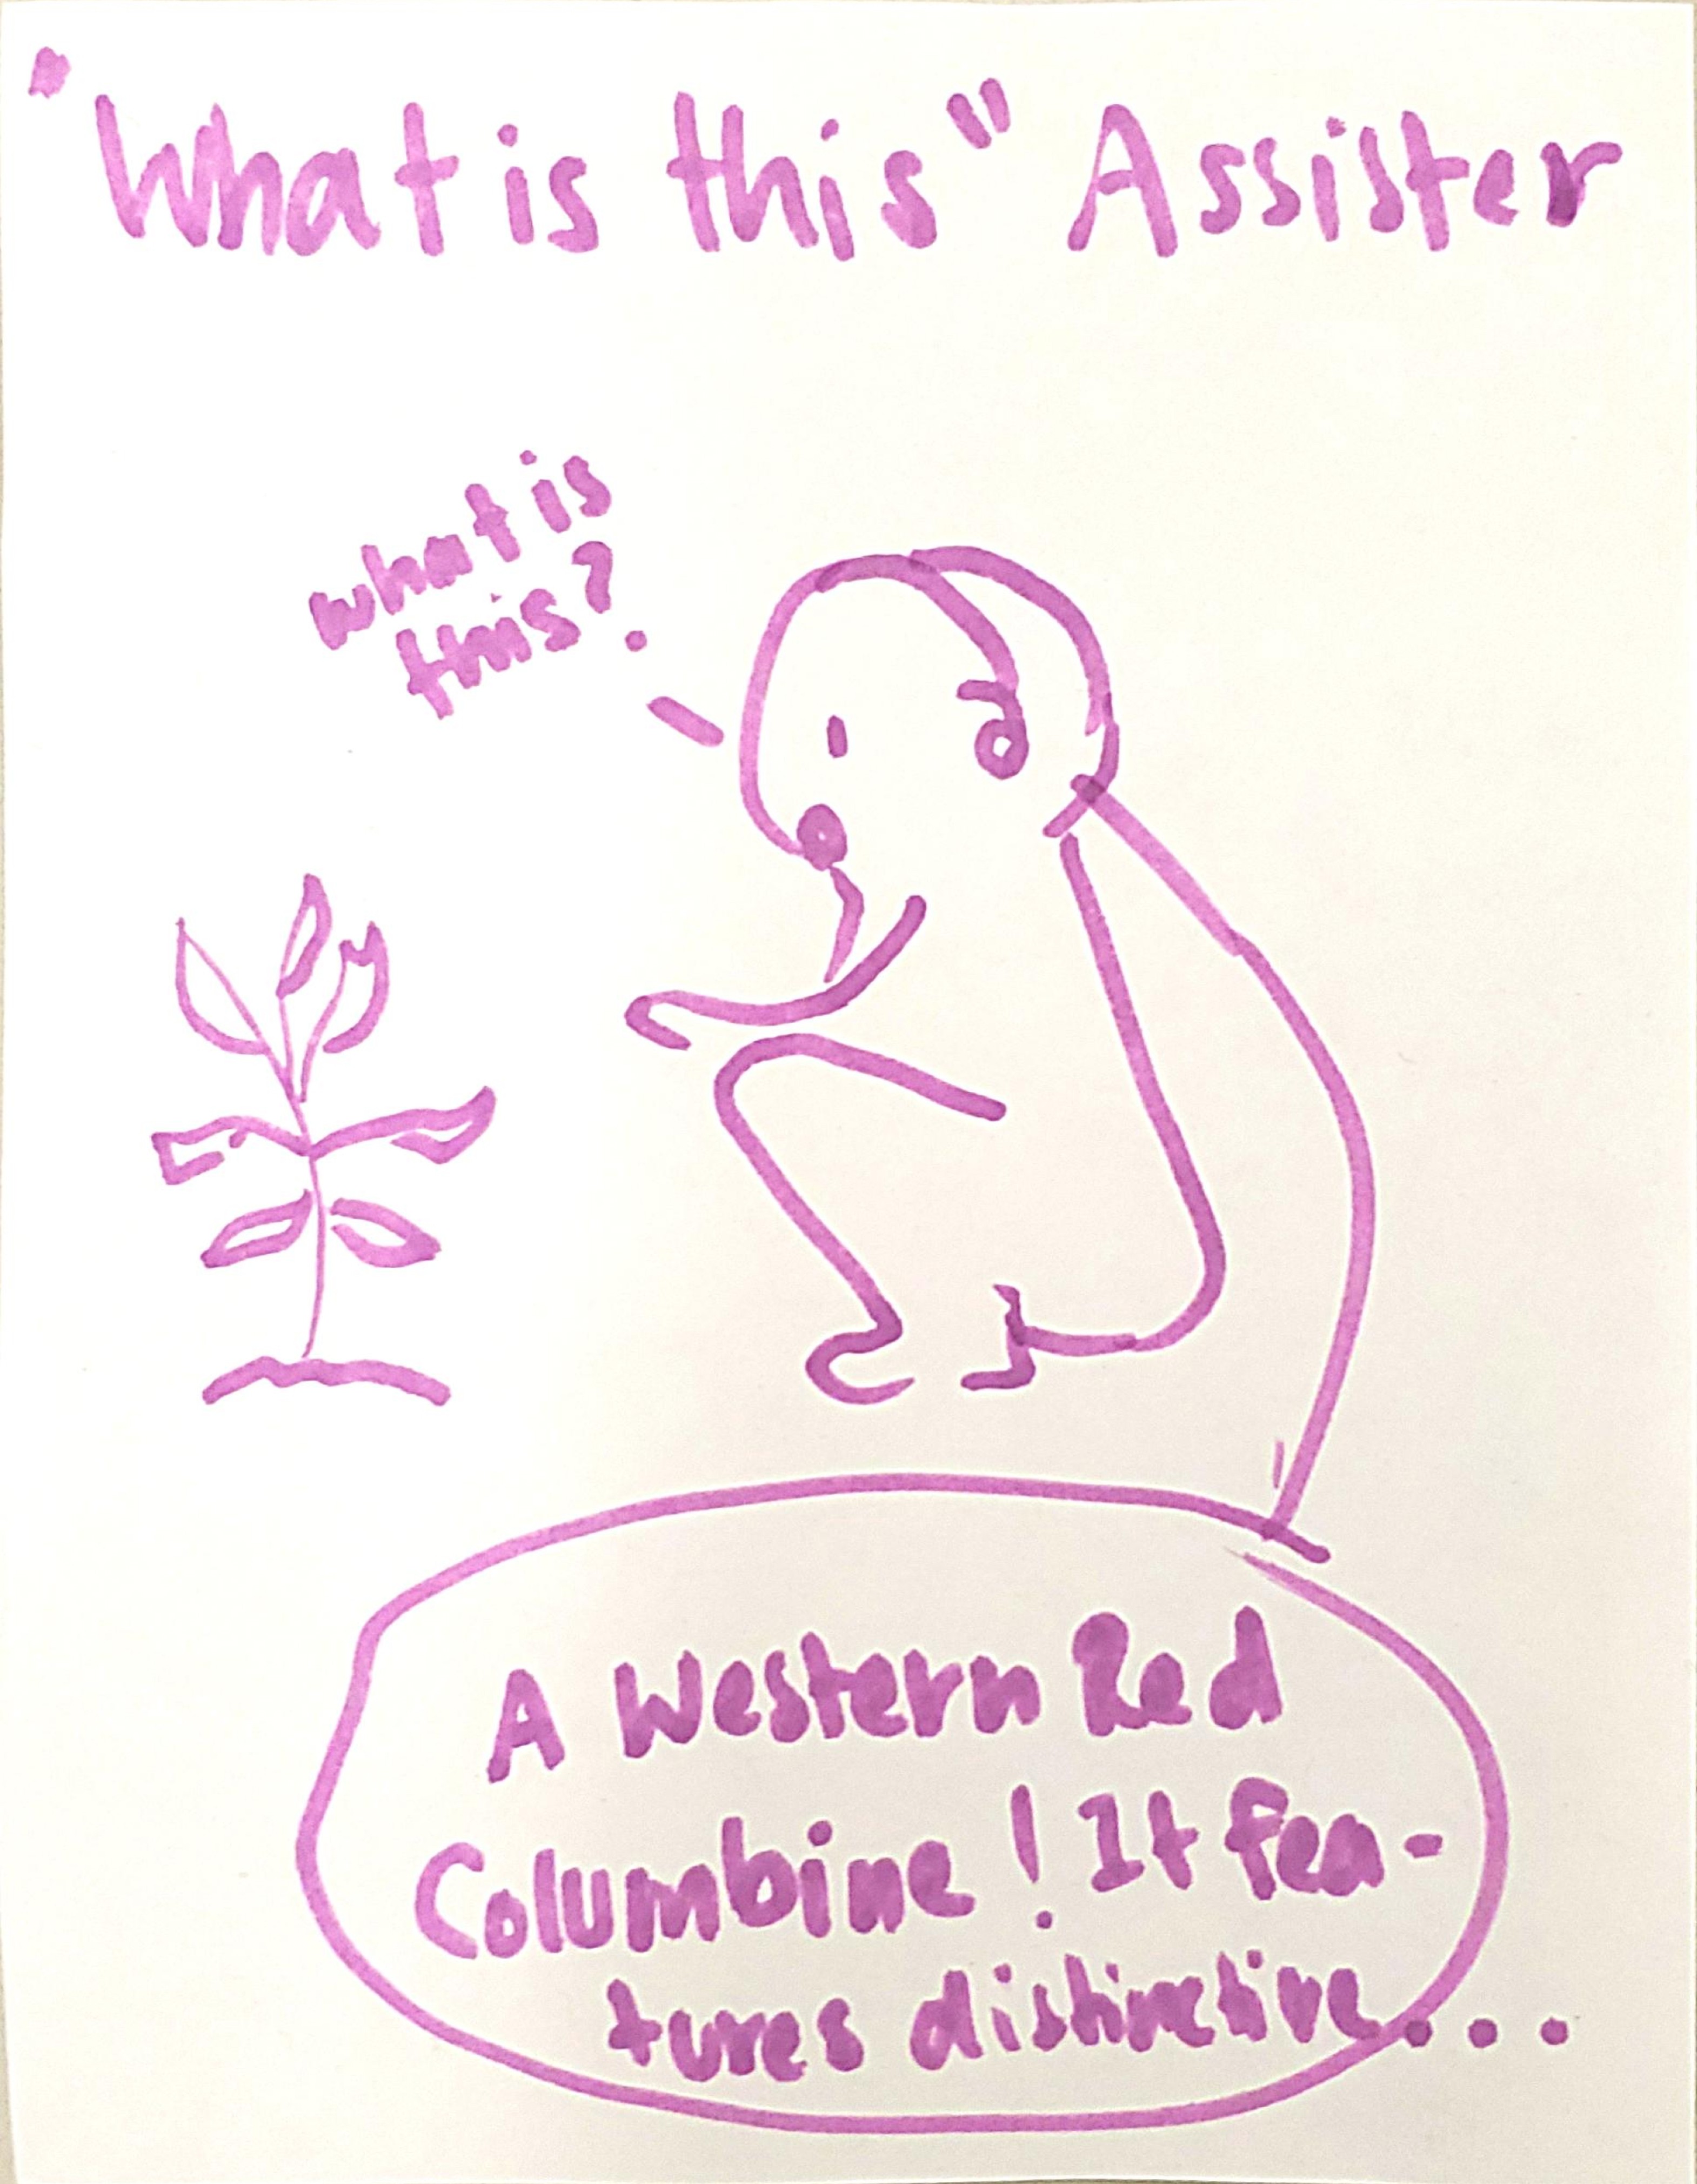 "What is this" Assister
what is
this?
A Western Red
Columbine! It fea-
tures distinctive...